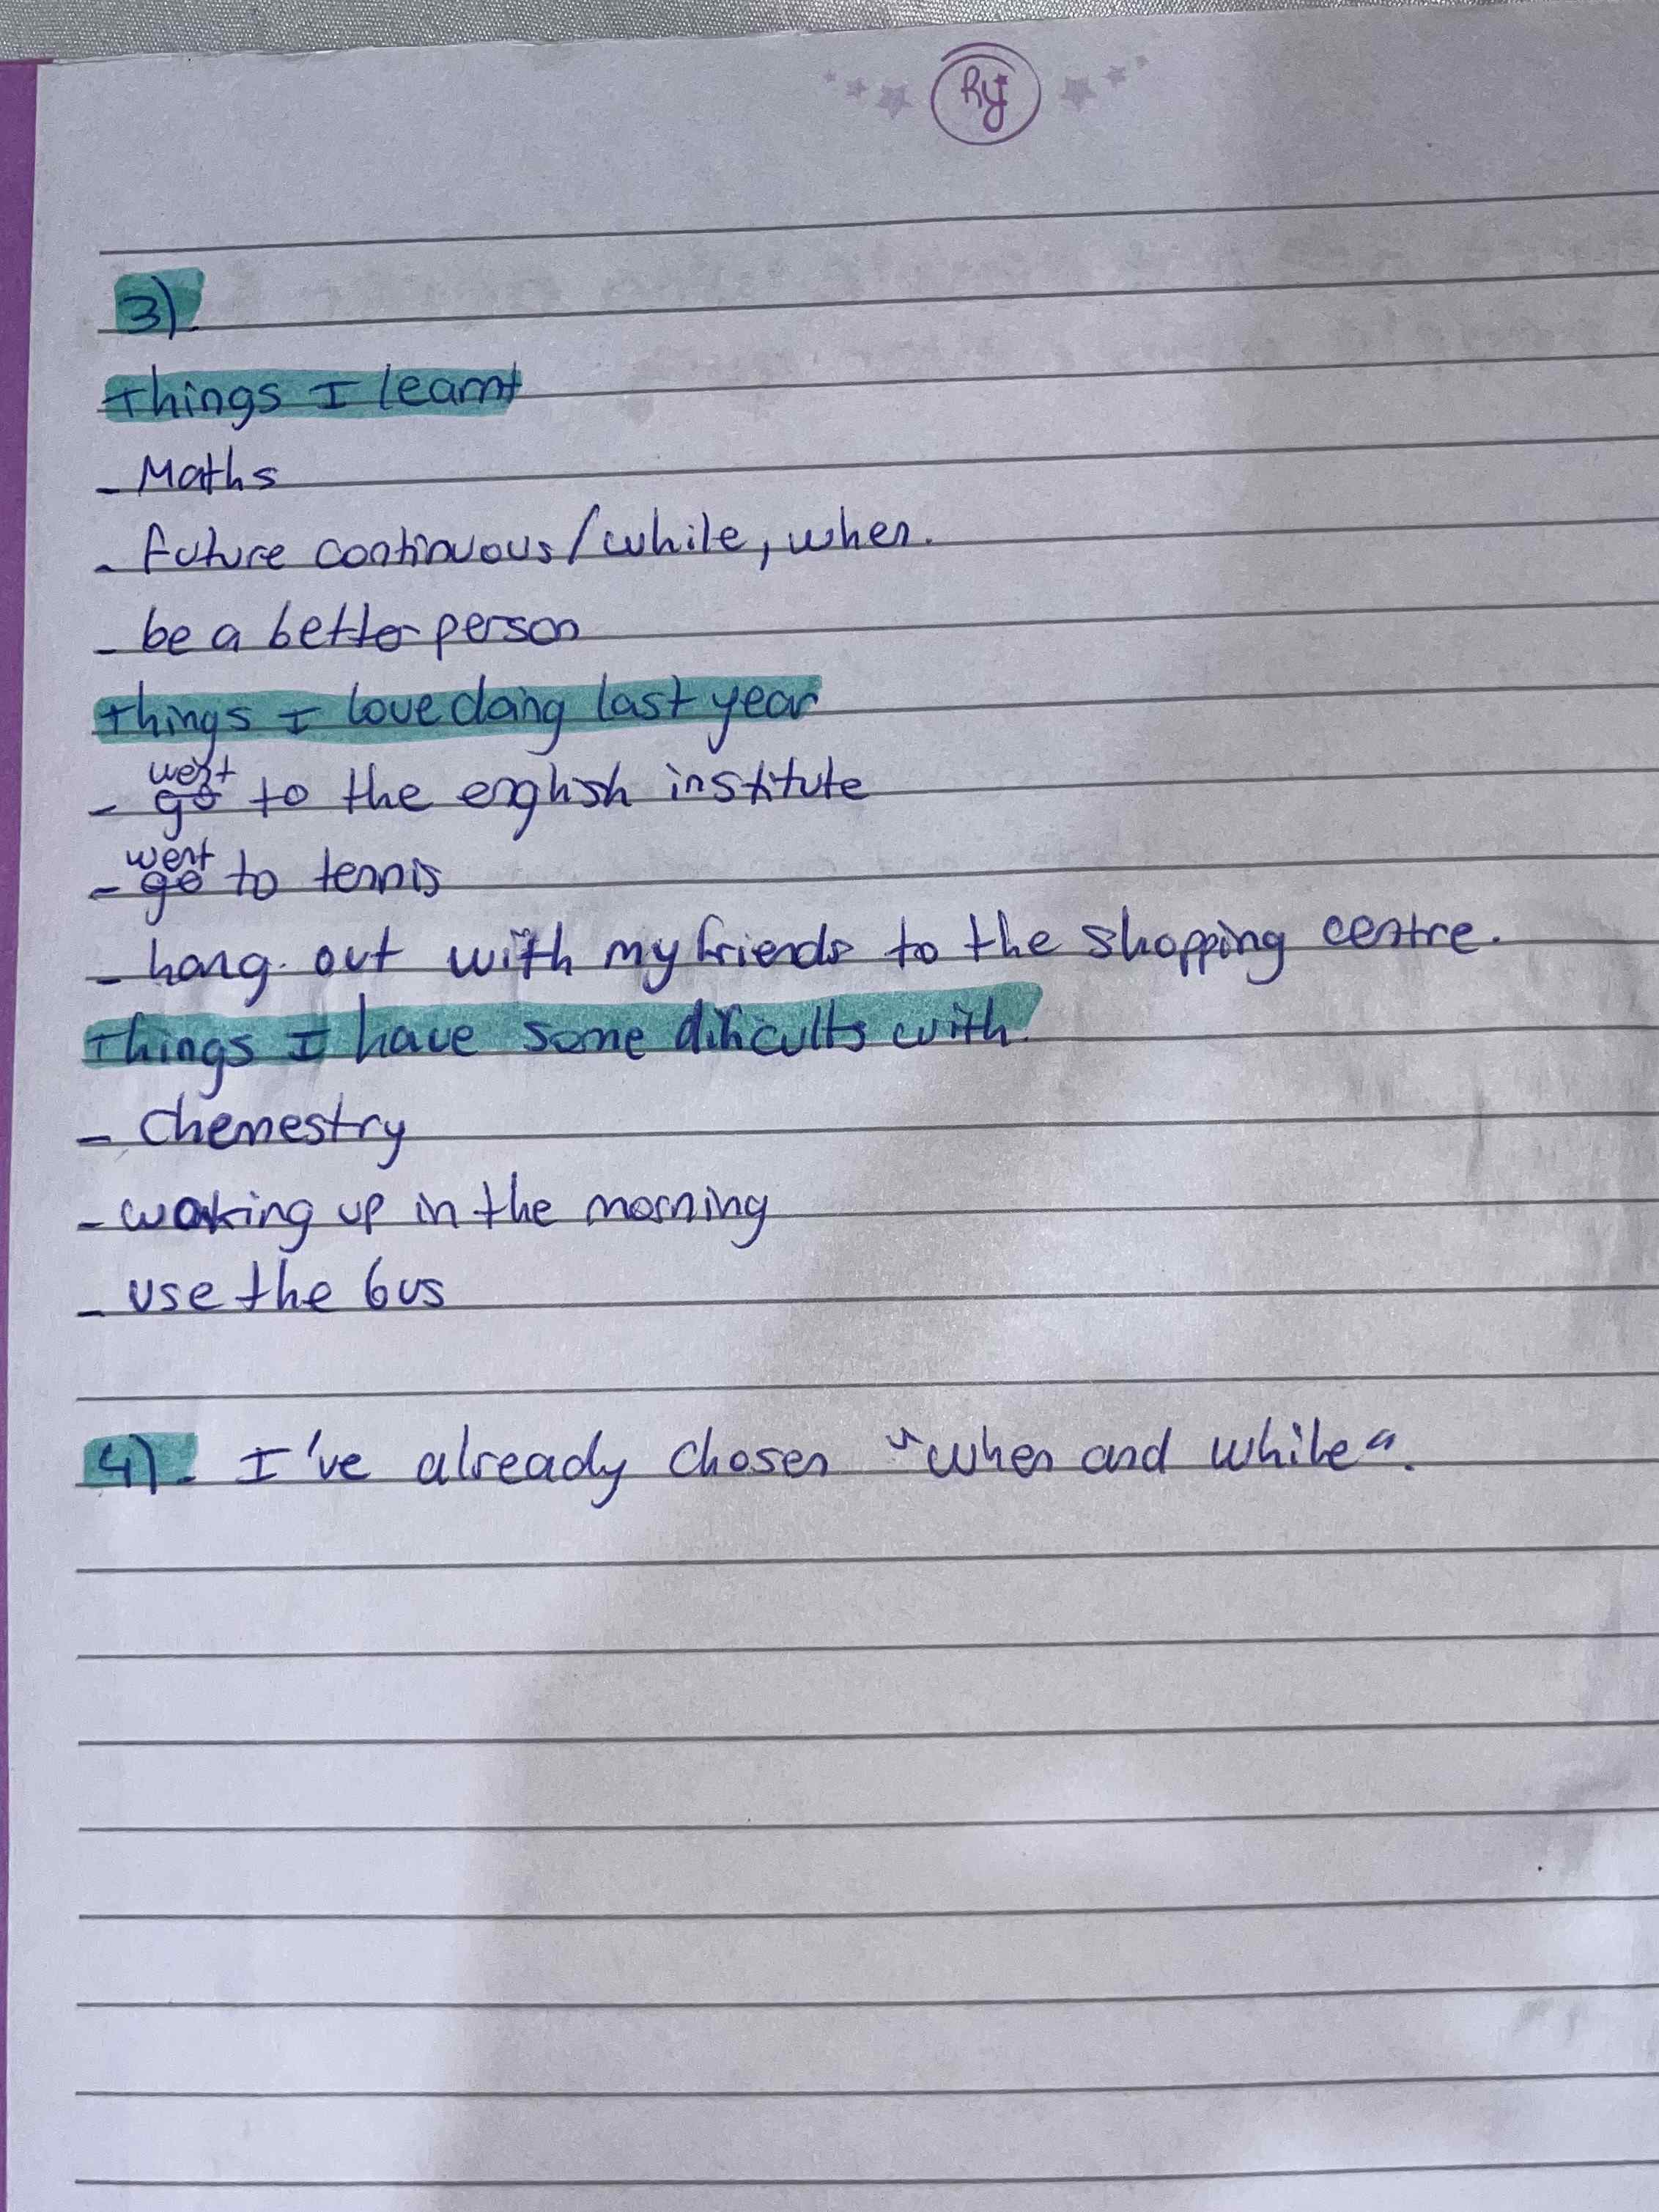 Ry
3).
Things I learnt
- Maths
- future continuous/while, when.
- be a better person
things I love doing last year
went
- go to the english institute
went
- go to tennis
- hang out with my friends to the shopping centre.
Things I have some dificults with.
- Chemestry
- waking up in the morning
- use the bus
4). I've already chosen "when and while".